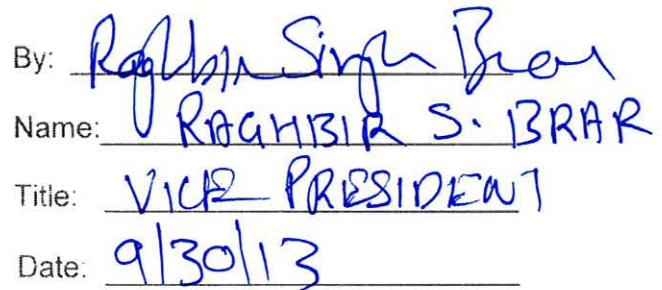 By: Raghbir Singh Brar
Name: RAGHBIR S. BRAR
Title: VICE PRESIDENT
Date: 9/30/13